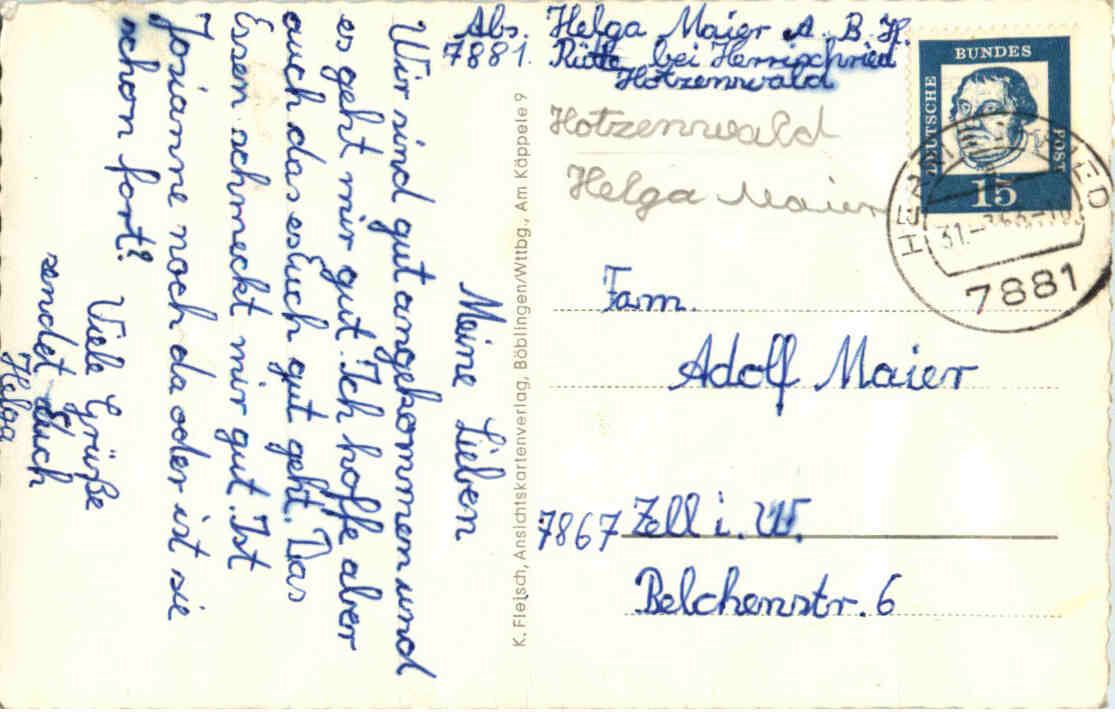 Abs. Helga Maier A. B. H.
7881. Rütte bei Herrischried
Hotzenwald
Hotzenwald
Helga Maier
DEUTSCHE
BUNDES
POST
15
31.-
7881
Meine Lieben
Wir sind gut angekommem und
es geht mir gut. Ich hoffe aber
auch das es Euch gut geht. Das
Essen schmeckt mir gut. Ist
Josianne noch da oder ist sie
schon fort?
Viele Grüße
sendet Euch
Helga
K. Fleisch, Ansichtskartenverlag, Böblingen/Wttbg., Am Käppele 9
Fam.
Adolf Maier
7867 Zell i. W.
Belchenstr. 6